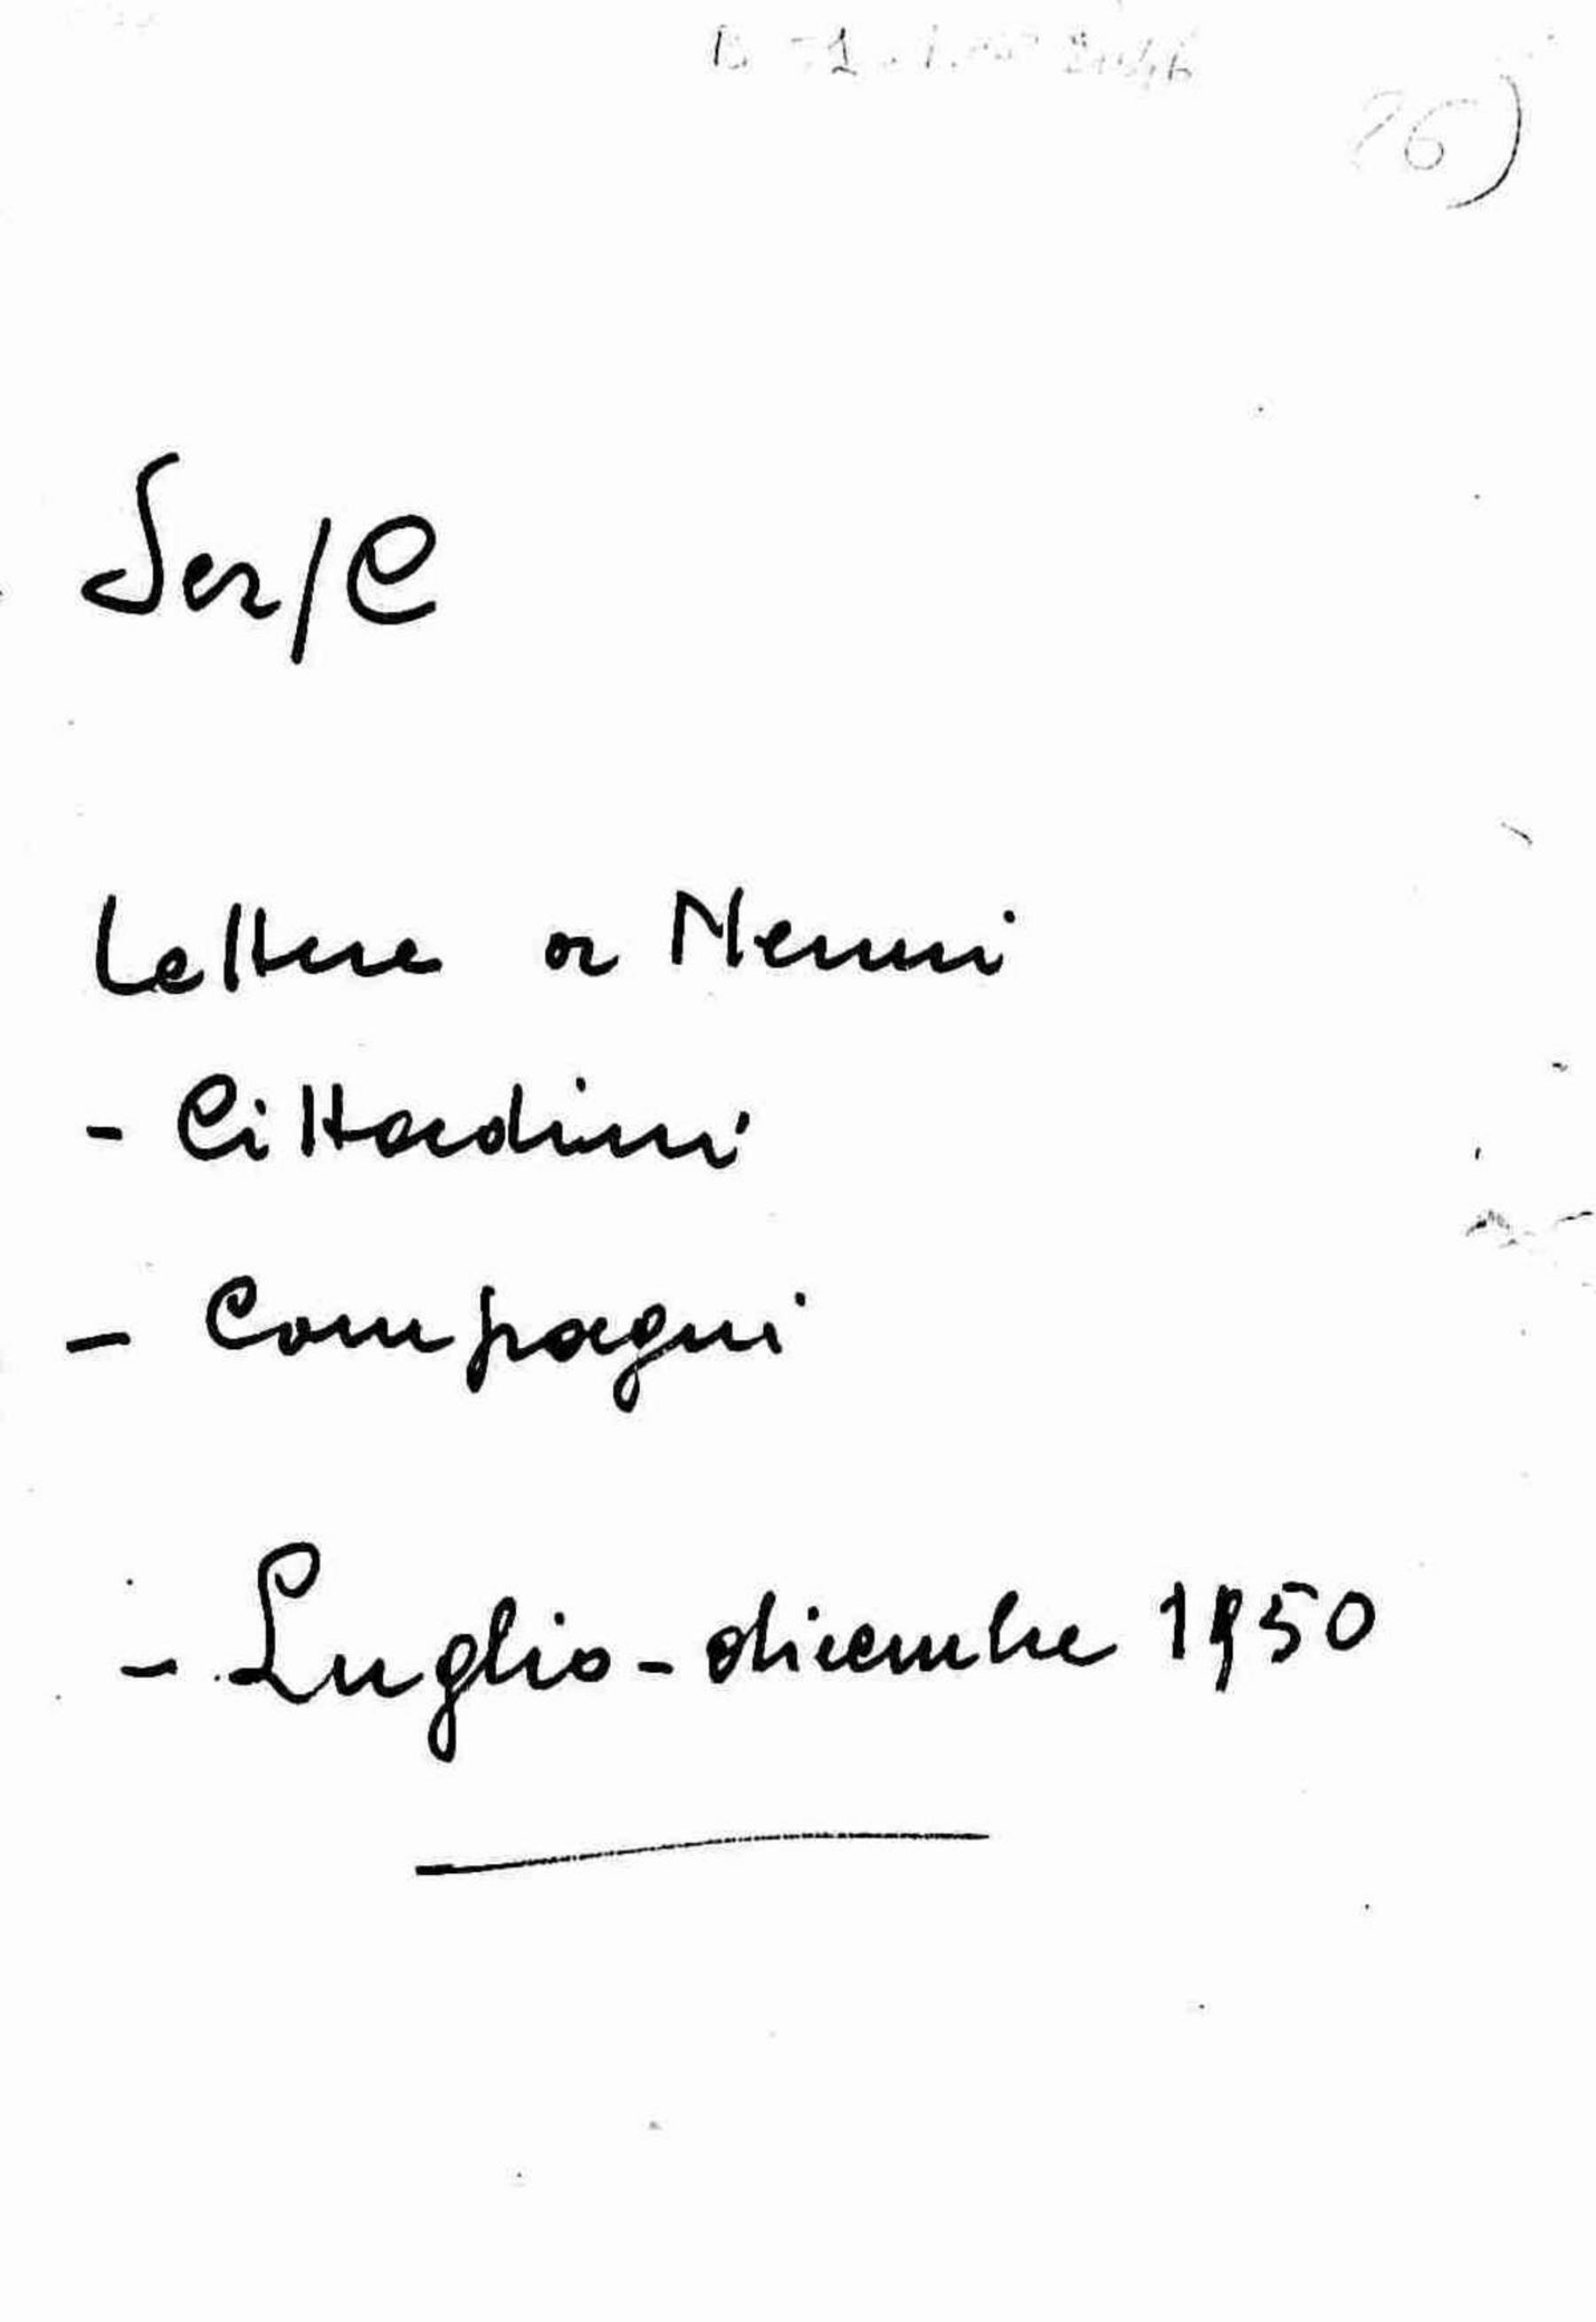 26)
Ser/C
Lettere a Nenni
- Cittadini
- Compagni
- Luglio-dicembre 1950